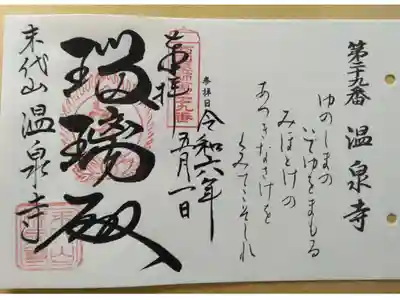 第二十九番 温泉寺
ゆのしまの
いでゆをまもる
みほとけの
あつきなさけを
くみてこそしれ
参拝日
令和六年
五月一日
奉拝
瑠璃殿
末代山 温泉寺